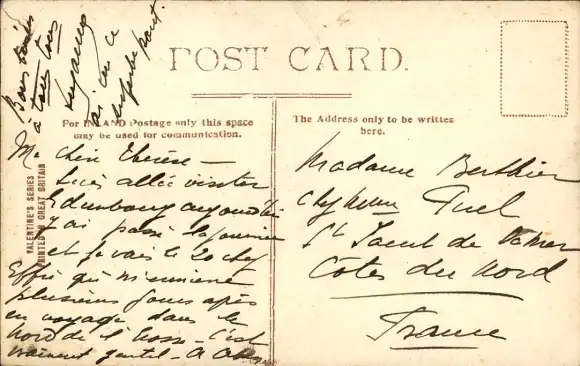 POST CARD.
For INLAND Postage only this space
may be used for communication.
The Address only to be written
here.
VALENTINE'S SERIES
PRINTED IN GREAT BRITAIN
Ma chère Thérèse —
suis allée visiter
Edimbourg aujourd'hui
J'ai passé la journée
et je vais le 20 chez
Effie qui m'emmène
plusieurs jours après
en voyage dans le
Nord de l'Ecosse — C'est
vraiment gentil — A
Bons
à tous tous
j'ai vu ce
superbe pont
Madame Berthier
chez
St Jacut de la Mer
Côtes du Nord
France